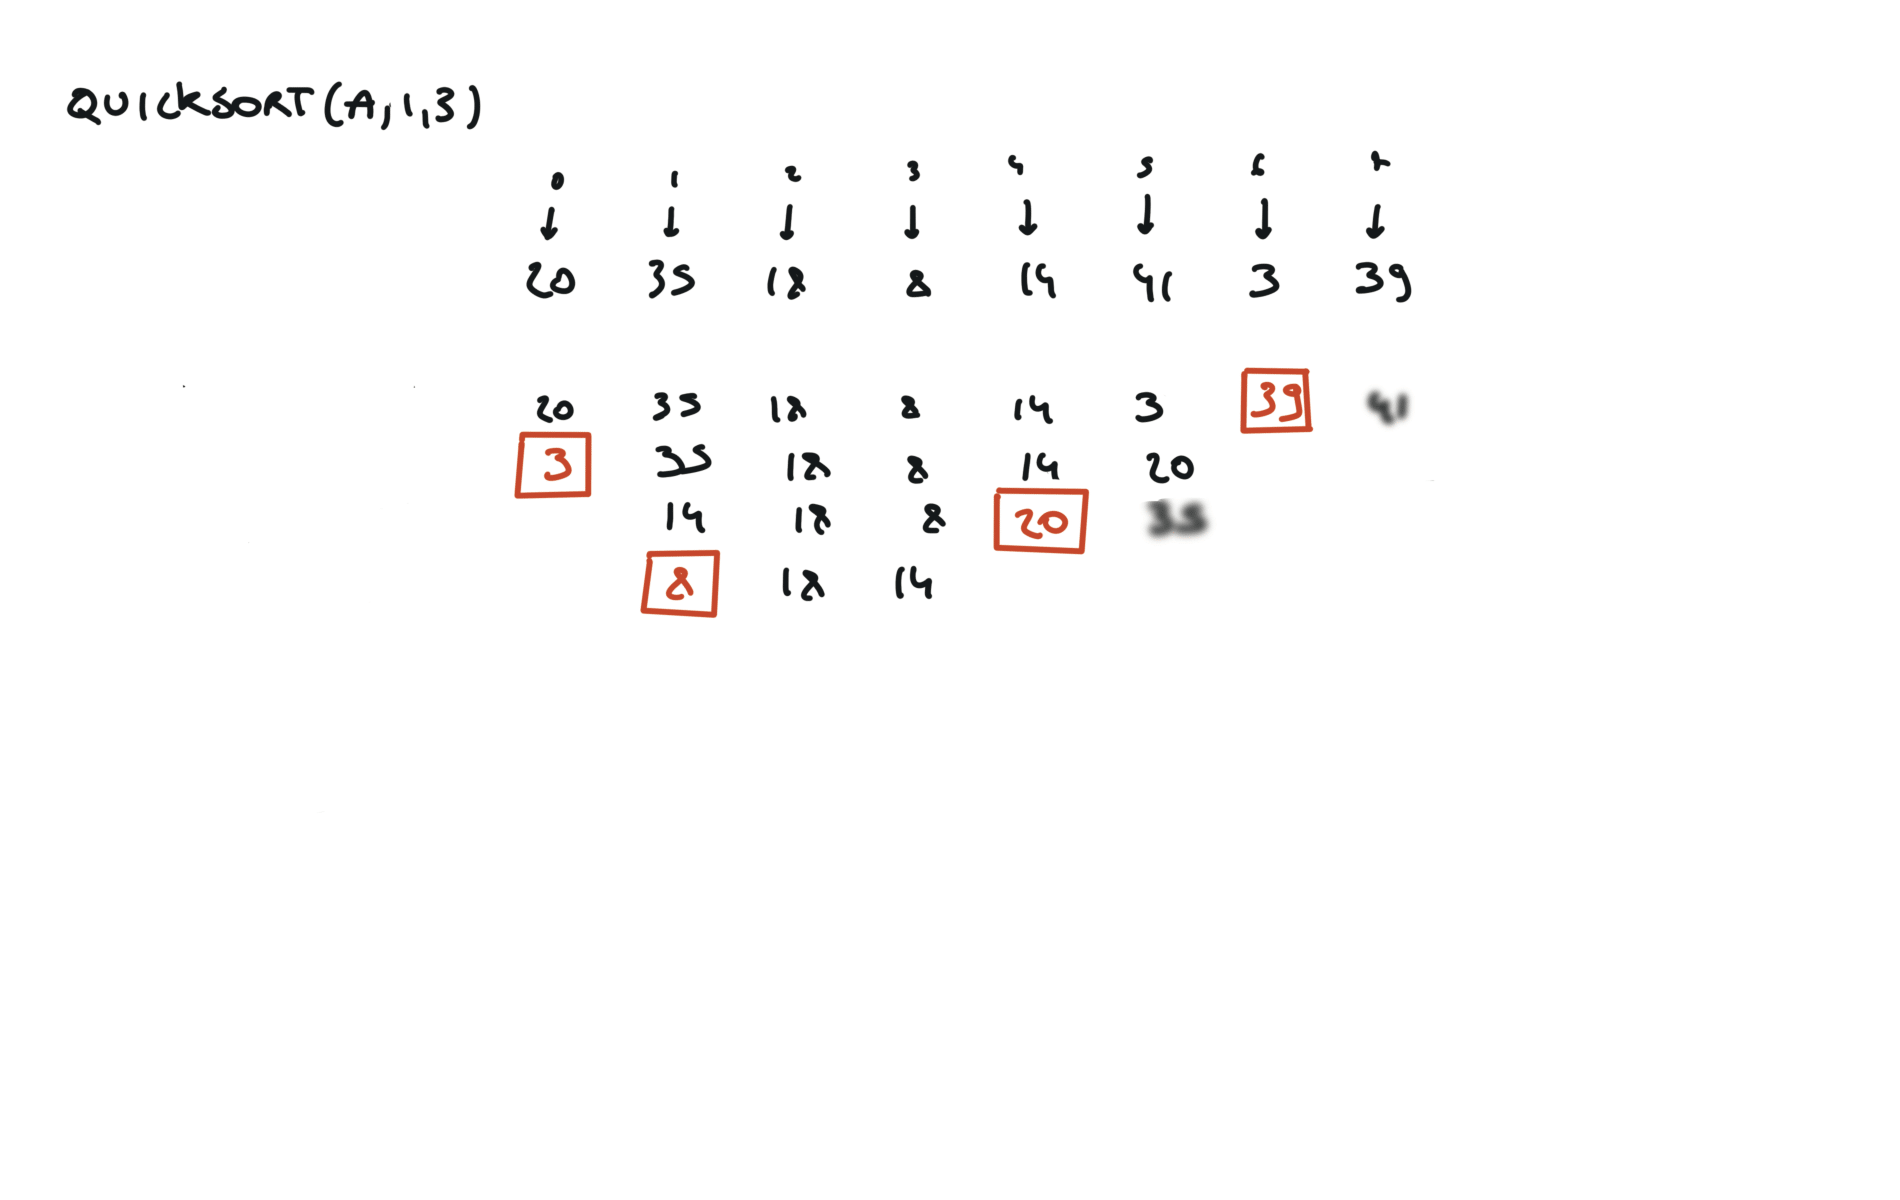 QUICKSORT(A,1,3)
0 1 2 3 4 5 6 7
↓ ↓ ↓ ↓ ↓ ↓ ↓ ↓
20 35 18 8 14 41 3 39
20 35 18 8 14 3 39 41
3 35 18 8 14 20
14 18 8 20 35
8 18 14